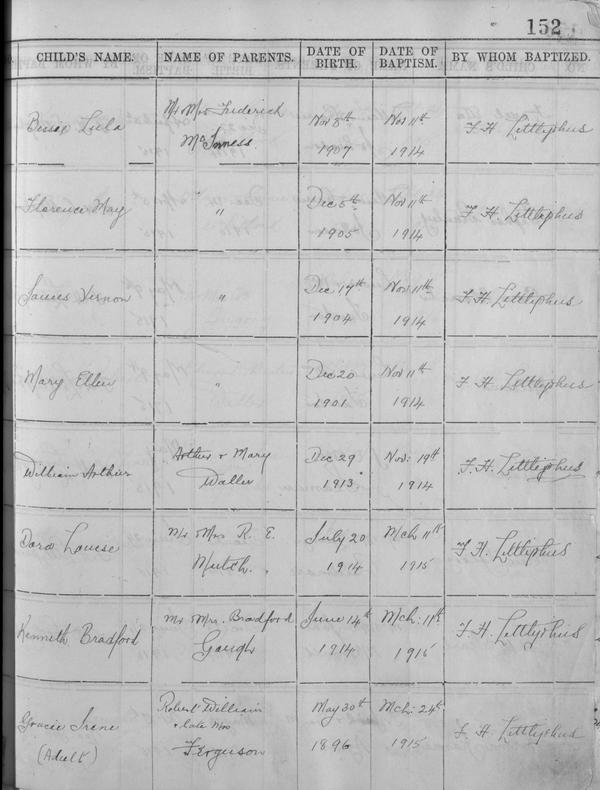 152
CHILD'S NAME. NAME OF PARENTS. DATE OF BIRTH. DATE OF BAPTISM. BY WHOM BAPTIZED.
Bessie Lula Mr & Mrs Friderich Nov 8th Nov 11th F. H. Littlephus
McInness. 1907 1914
Florence May " Dec 5th Nov 11th F. H. Littlephus
" 1905 1914
James Vernon " Dec 17th Nov 11th F. H. Littlephus
1904 1914
Mary Ellen " Dec 20 Nov 11th F. H. Littlephus
1901 1914
William Arthur Arthur & Mary Dec 29 Nov: 19th F. H. Littlephus
Waller 1913 1914
Dora Louise Mr & Mrs R. E. July 20 Mch 11th F. H. Littlephus
Mutch. 1914 1915
Kenneth Bradford Mr & Mrs. Bradford June 14th Mch: 11th F. H. Littlephus
Gough 1914 1915
Gracie Irene Robert William May 30th Mch: 24th F. H. Littlephus
(Adult) & late Mrs 1896 1915
Ferguson